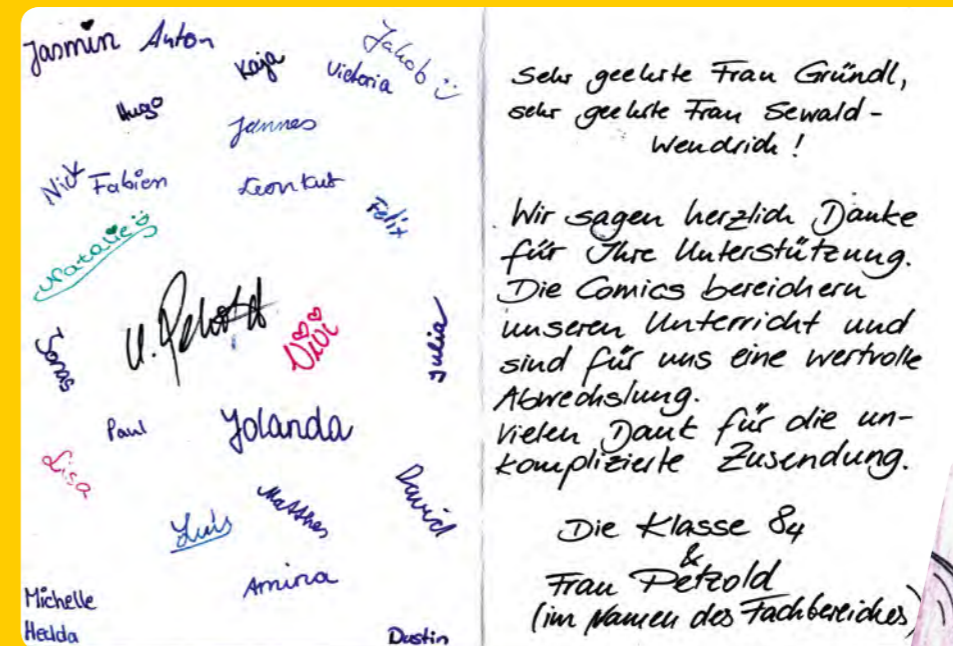 Jasmin Anton
Kaja
Victoria
Jakob
Hugo
Jannes
Nick Fabien
Leon Kurt
Felix
Natalie
Jonas
Vivi
Julia
Paul
Jolanda
Lisa
David
Matthes
Luis
Amina
Michelle
Hedda
Dustin
Sehr geehrte Frau Gründl,
sehr geehrte Frau Sewald-
Wendrich!
Wir sagen herzlich Danke
für Ihre Unterstützung.
Die Comics bereichern
unseren Unterricht und
sind für uns eine wertvolle
Abwechslung.
Vielen Dank für die un-
komplizierte Zusendung.
Die Klasse 84
&
Frau Petzold
(im Namen des Fachbereiches)